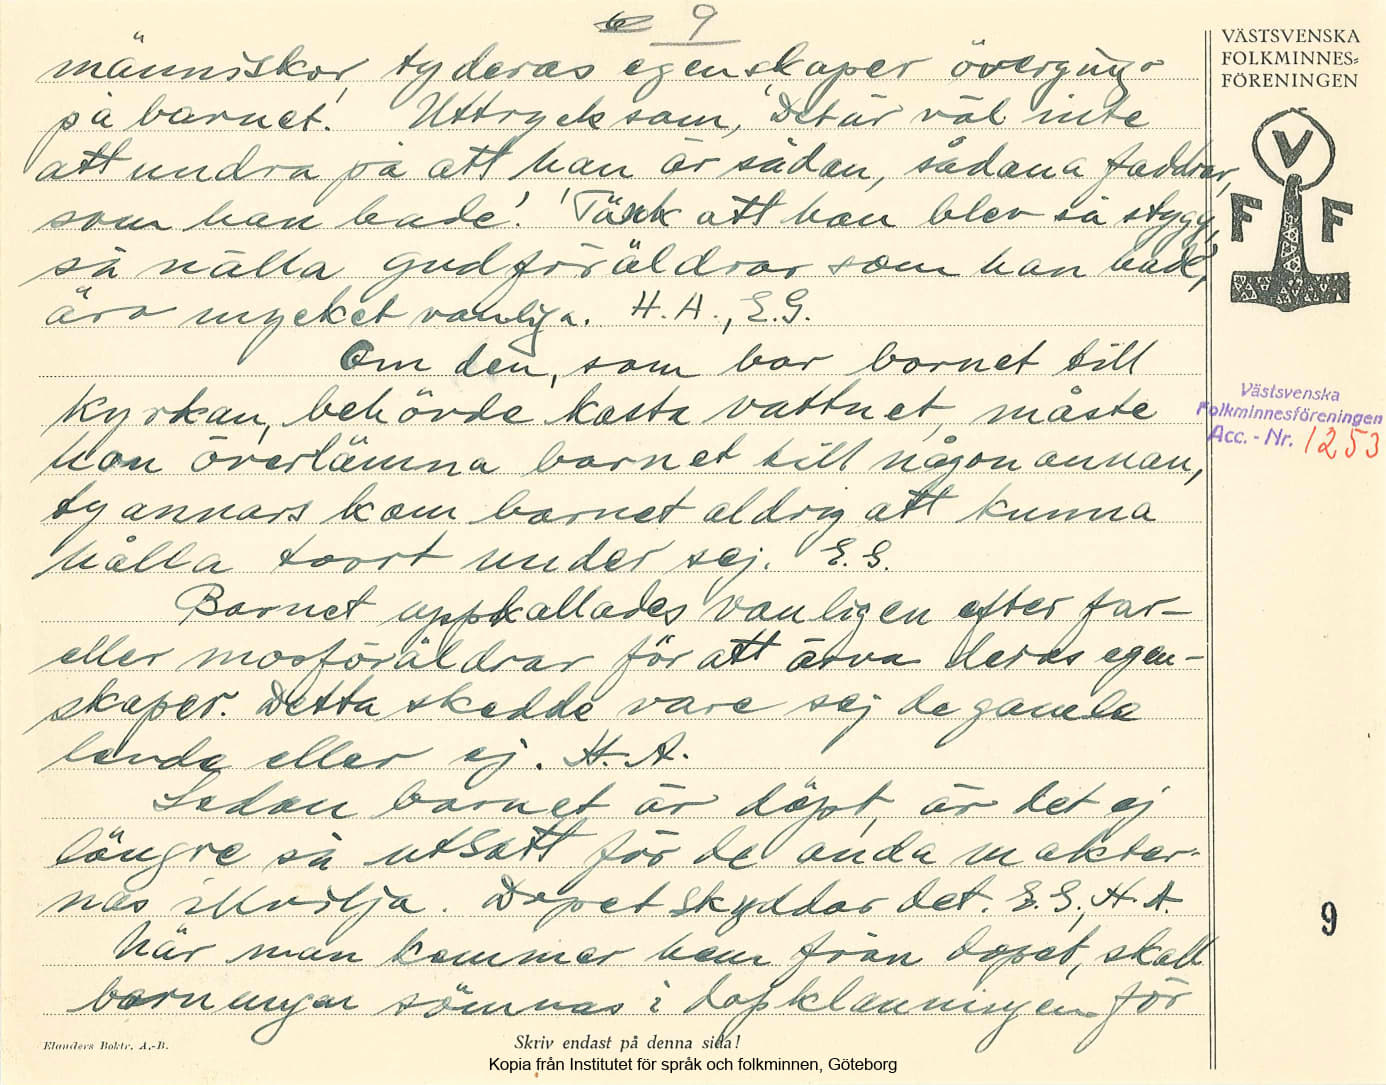 9
VÄSTSVENSKA
FOLKMINNES-
FÖRENINGEN
V
F F
människor, ty deras egenskaper övergingo
på barnet. Uttryck som, 'Det är väl inte
att undra på att han är sådan, sådana faddrar,
som han hade'. 'Tänk att han blev så stygg,
så nälla gudföräldrar som han hade',
äro mycket vanliga. H. A., E. G.
Om den, som bar barnet till
kyrkan, behövde kasta vattnet, måste
hon överlämna barnet till någon annan,
ty annars kom barnet aldrig att kunna
hålla torrt under sej. E. G.
Barnet uppkallades vanligen efter far-
eller morföräldrar för att ärva deras egen-
skaper. Detta skedde vare sej de gamla
levde eller ej. H. A.
Sedan barnet är döpt, är det ej
längre så utsatt för de onda makter-
nas illvilja. Dopet skyddar det. E. G., H. A.
När man kommer hem från dopet, skall
barnungen sömnas i dopklänningen för
Västsvenska
Folkminnesföreningen
Acc. - Nr. 1253
9
Elanders Boktr. A.-B.
Skriv endast på denna sida!
Kopia från Institutet för språk och folkminnen, Göteborg